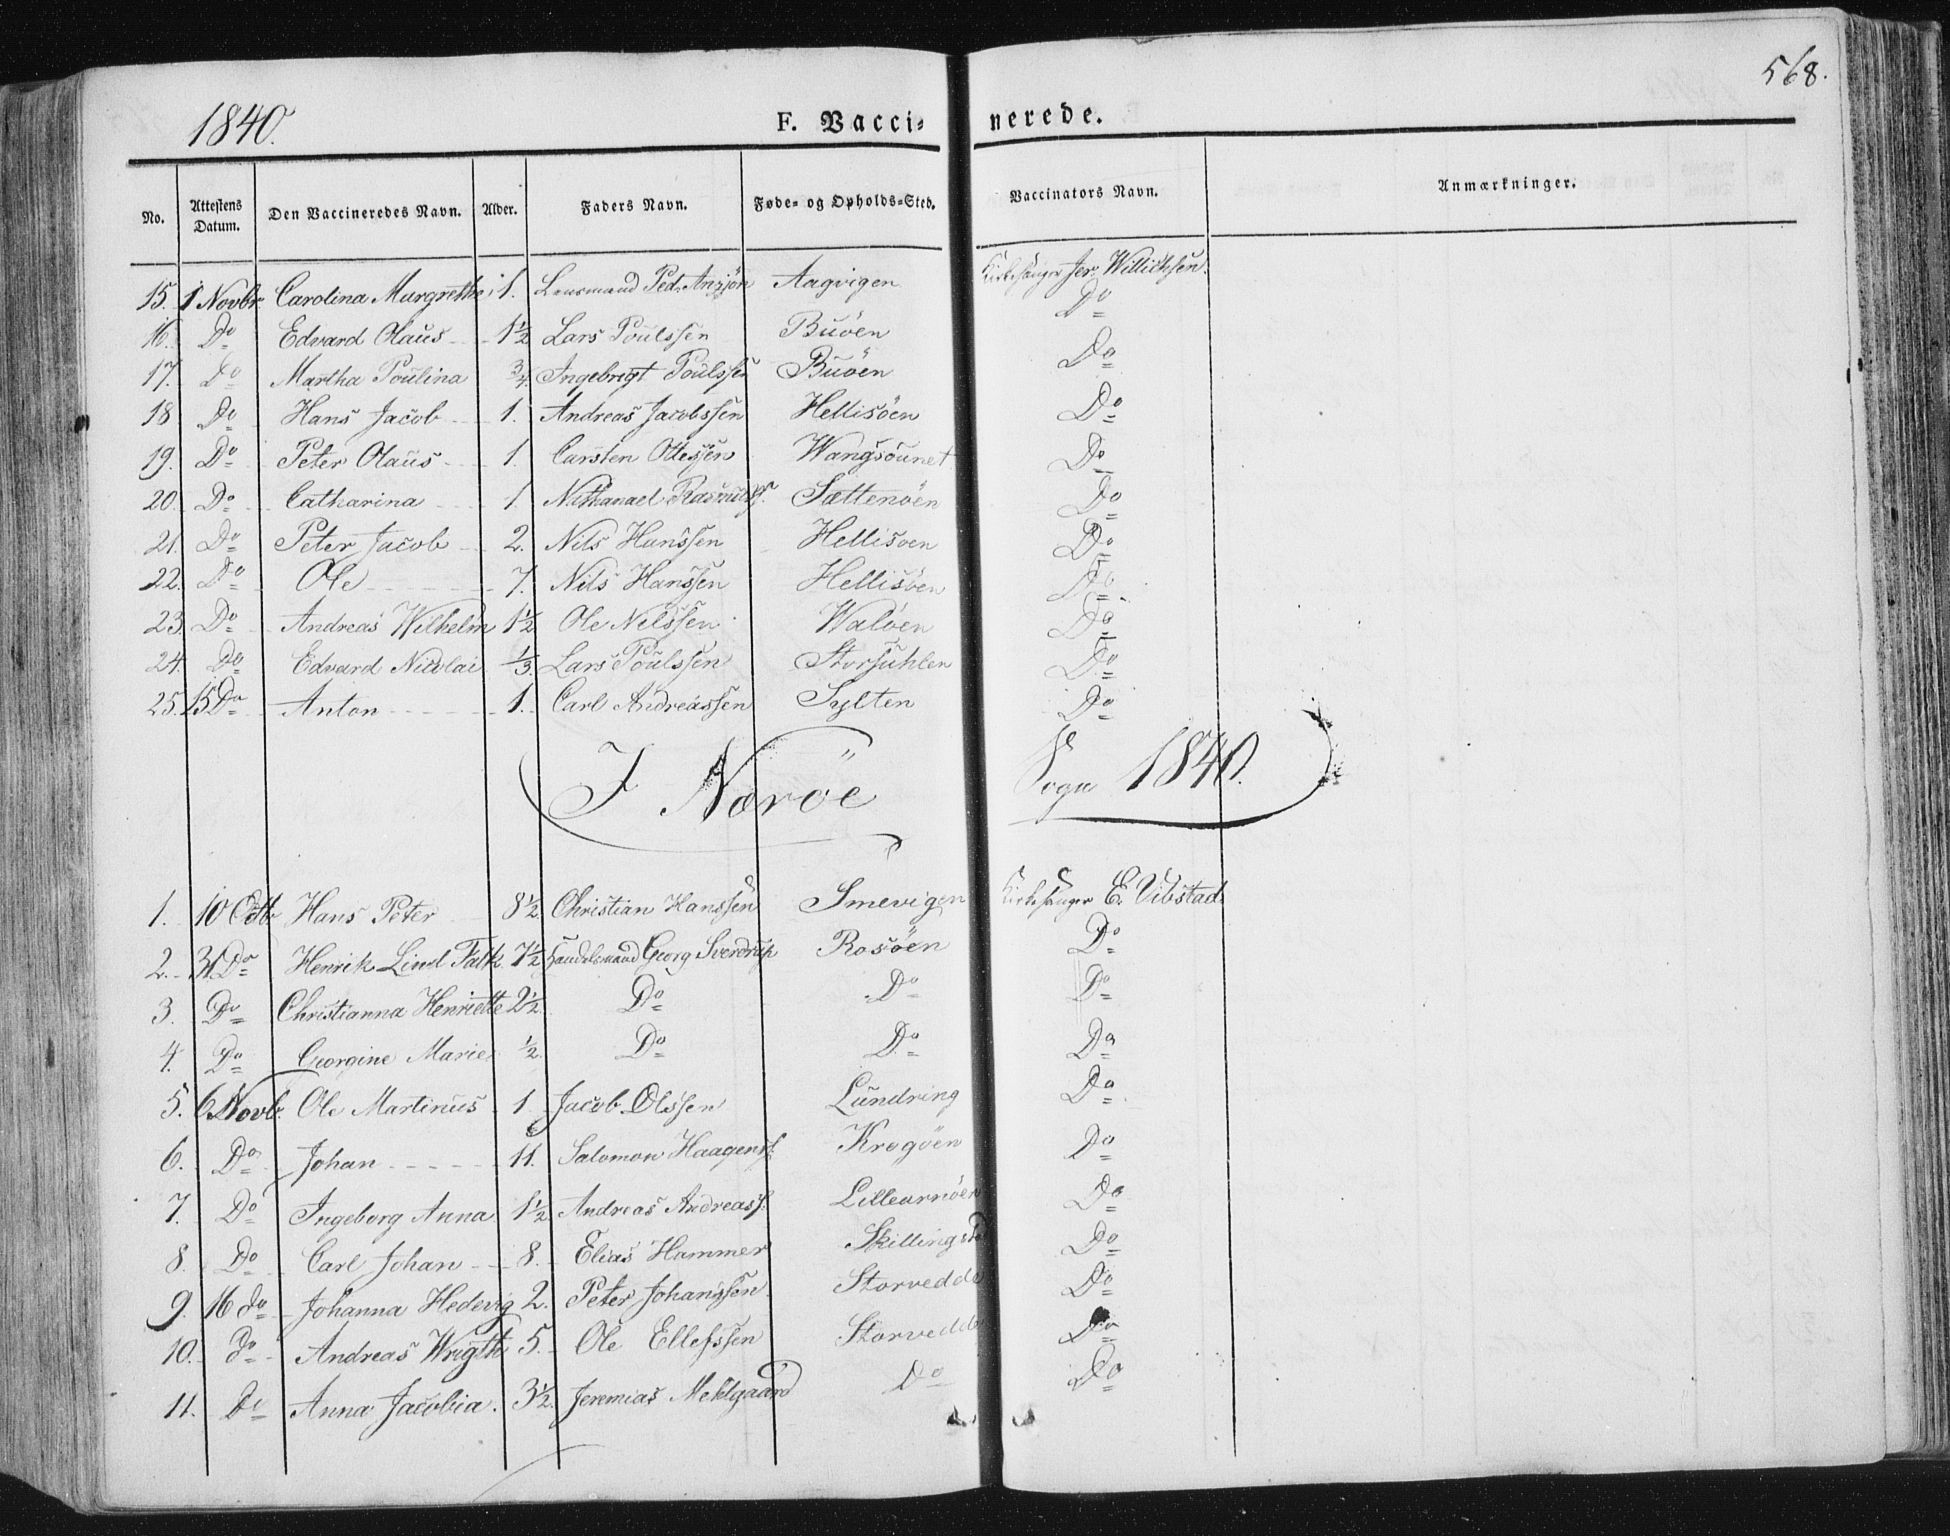 1840.
F. Vacci-
nerede.
568.
No. Attestens Datum. Den Vaccineredes Navn. Alder. Faders Navn. Føde- og Opholds-Sted. Vaccinators Navn. Anmærkninger.
15. 1 Novbr Carolina Margrethe 1. Lensmand Ped. Anzjøn Aagvigen Kirkesanger Jer. Willichsen.
16. Do Edvard Olaus 1½ Lars Poulssen Buöen Do
17. Do Martha Poulina ¾ Ingebregt Poulssen Buöen Do
18 Do Hans Jacob 1. Andreas Jacobssen Hellisöen Do
19. Do Peter Olaus 1. Carsten Ottessen Wangsöunet Do
20. Do Catharina 1. Nathanael Rasmuss. Sættenöen Do
21. Do Peter Jacob 2. Nils Hanssen Hellisöen Do
22. Do Ole 7. Nils Hanssen Hellisöen Do
23. Do Andreas Wilhelm 1½ Ole Nilssen Walöen Do
24. Do Edvard Nicolai ⅓. Lars Poulssen Storsuhlen Do
25. 15 Do Anton 1. Carl Andreassen Sylten Do
I Næröe Sogn 1840.
1. 10 Octb Hans Peter 8½ Christian Hanssen Smevigen Kirkesanger E. Vibstad
2. 31 Do Henrik Lind Falk 7½ Handelsmand Georg Sverdrup Rosöen Do
3. Do Christianna Henriette 2½ Do Do Do
4. Do Georgine Marie ½ Do Do Do
5. 6 Novb. Ole Martinus 1 Jacob Olssen Lundring Do
6. Do Johan 11. Salomon Haagenss. Krogöen Do
7. Do Ingeborg Anna 1½ Andreas Andreass. Lilleurnöen Do
8. Do Carl Johan 8. Elias Hammer Skillingstd Do
9. 16 do Johanna Hedevig 2. Peter Johanssen Storvedde Do
10. do Andreas Wrigth 5. Ole Ellefssen Storvedde Do
11. Do Anna Jacobia. 3½. Jeremias Mehlgaard Do Do